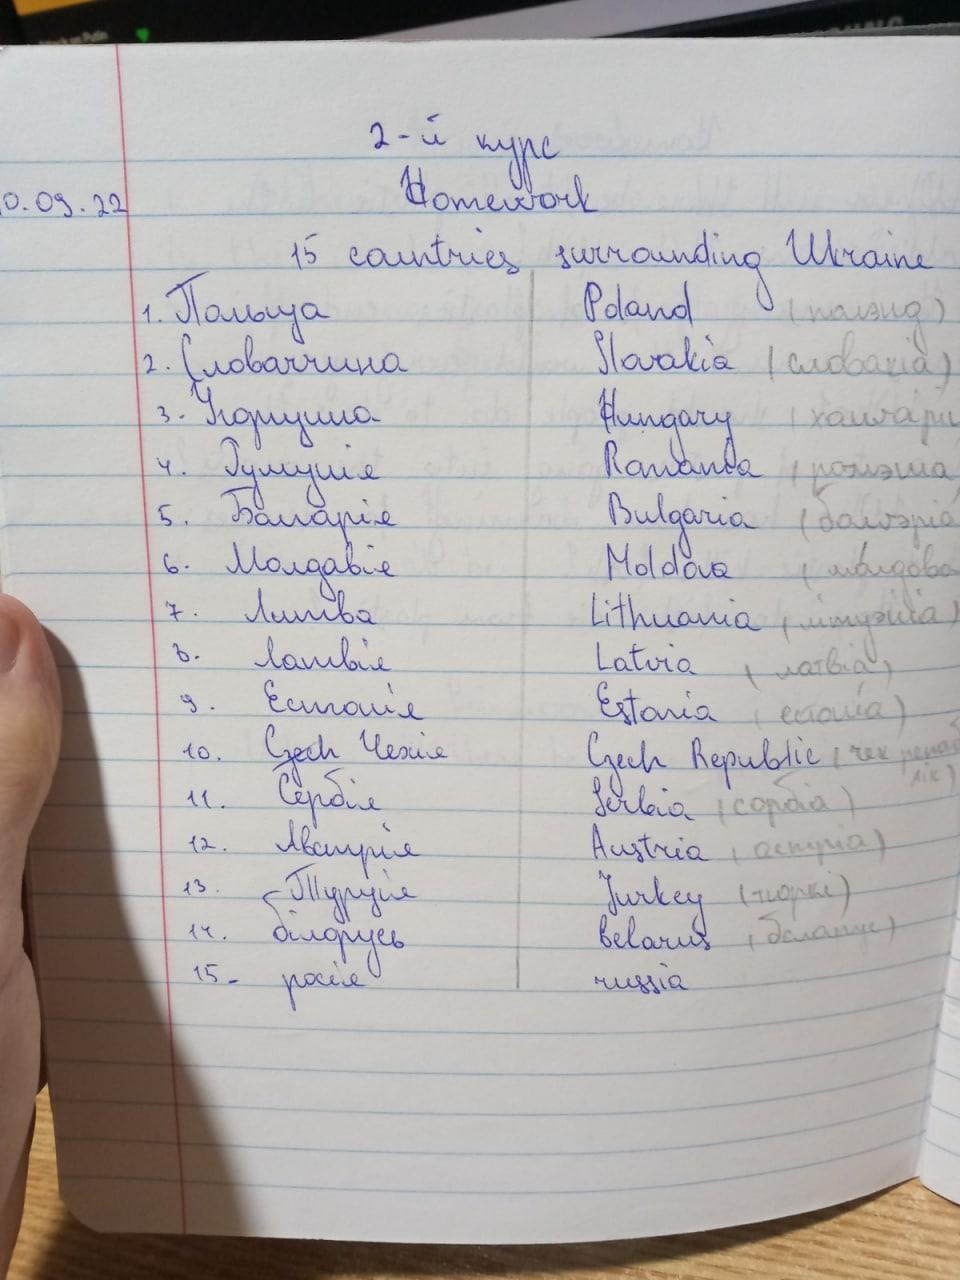 2-й курс
0.09.22
Homework
15 countries surrounding Ukraine
1. Польща Poland (полэнд)
2. Словаччина Slovakia (словакіа)
3. Угорщина Hungary (хангарі
4. Румунія Romania
5. Болгарія Bulgaria (болгэріа
6. Молдавія Moldova (молдова
7. Литва Lithuania (літуэніа)
8. Латвія Latvia (латвіа)
9. Естонія Estonia (естоніа)
10. Czech Чехія Czech Republic (чек репаб
лік)
11. Сербія Serbia (сорбіа)
12. Австрія Austria (астріа)
13. Турція Turkey
14. білорусь belarus
15. росія russia